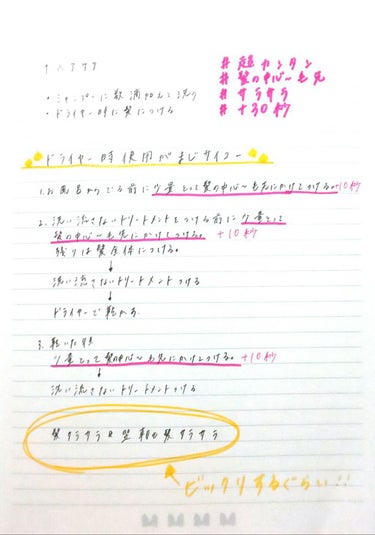 ナヘアケア
# 超カンタン
# 髪の中心〜毛先
# サラサラ
# +30秒
・シャンプーに数滴加えて洗う
・ドライヤー時に髪につける
ドライヤー時使用がまじサイコー
1. お風呂からでる前に少量とって髪の中心〜毛先にかけてつける。+10秒
2. 洗い流さないトリートメントをつける前に少量とって
髪の中心〜毛先にかけてつける。 +10秒
残りは髪全体につける。
↓
洗い流さないトリートメントつける
↓
ドライヤーで乾かす
3. 乾いた後
少量とって髪の中心〜毛先にかけてつける。+10秒
↓
洗い流さないトリートメントつける
髪サラサラ& 翌朝も髪サラサラ
ビックリするぐらい!!